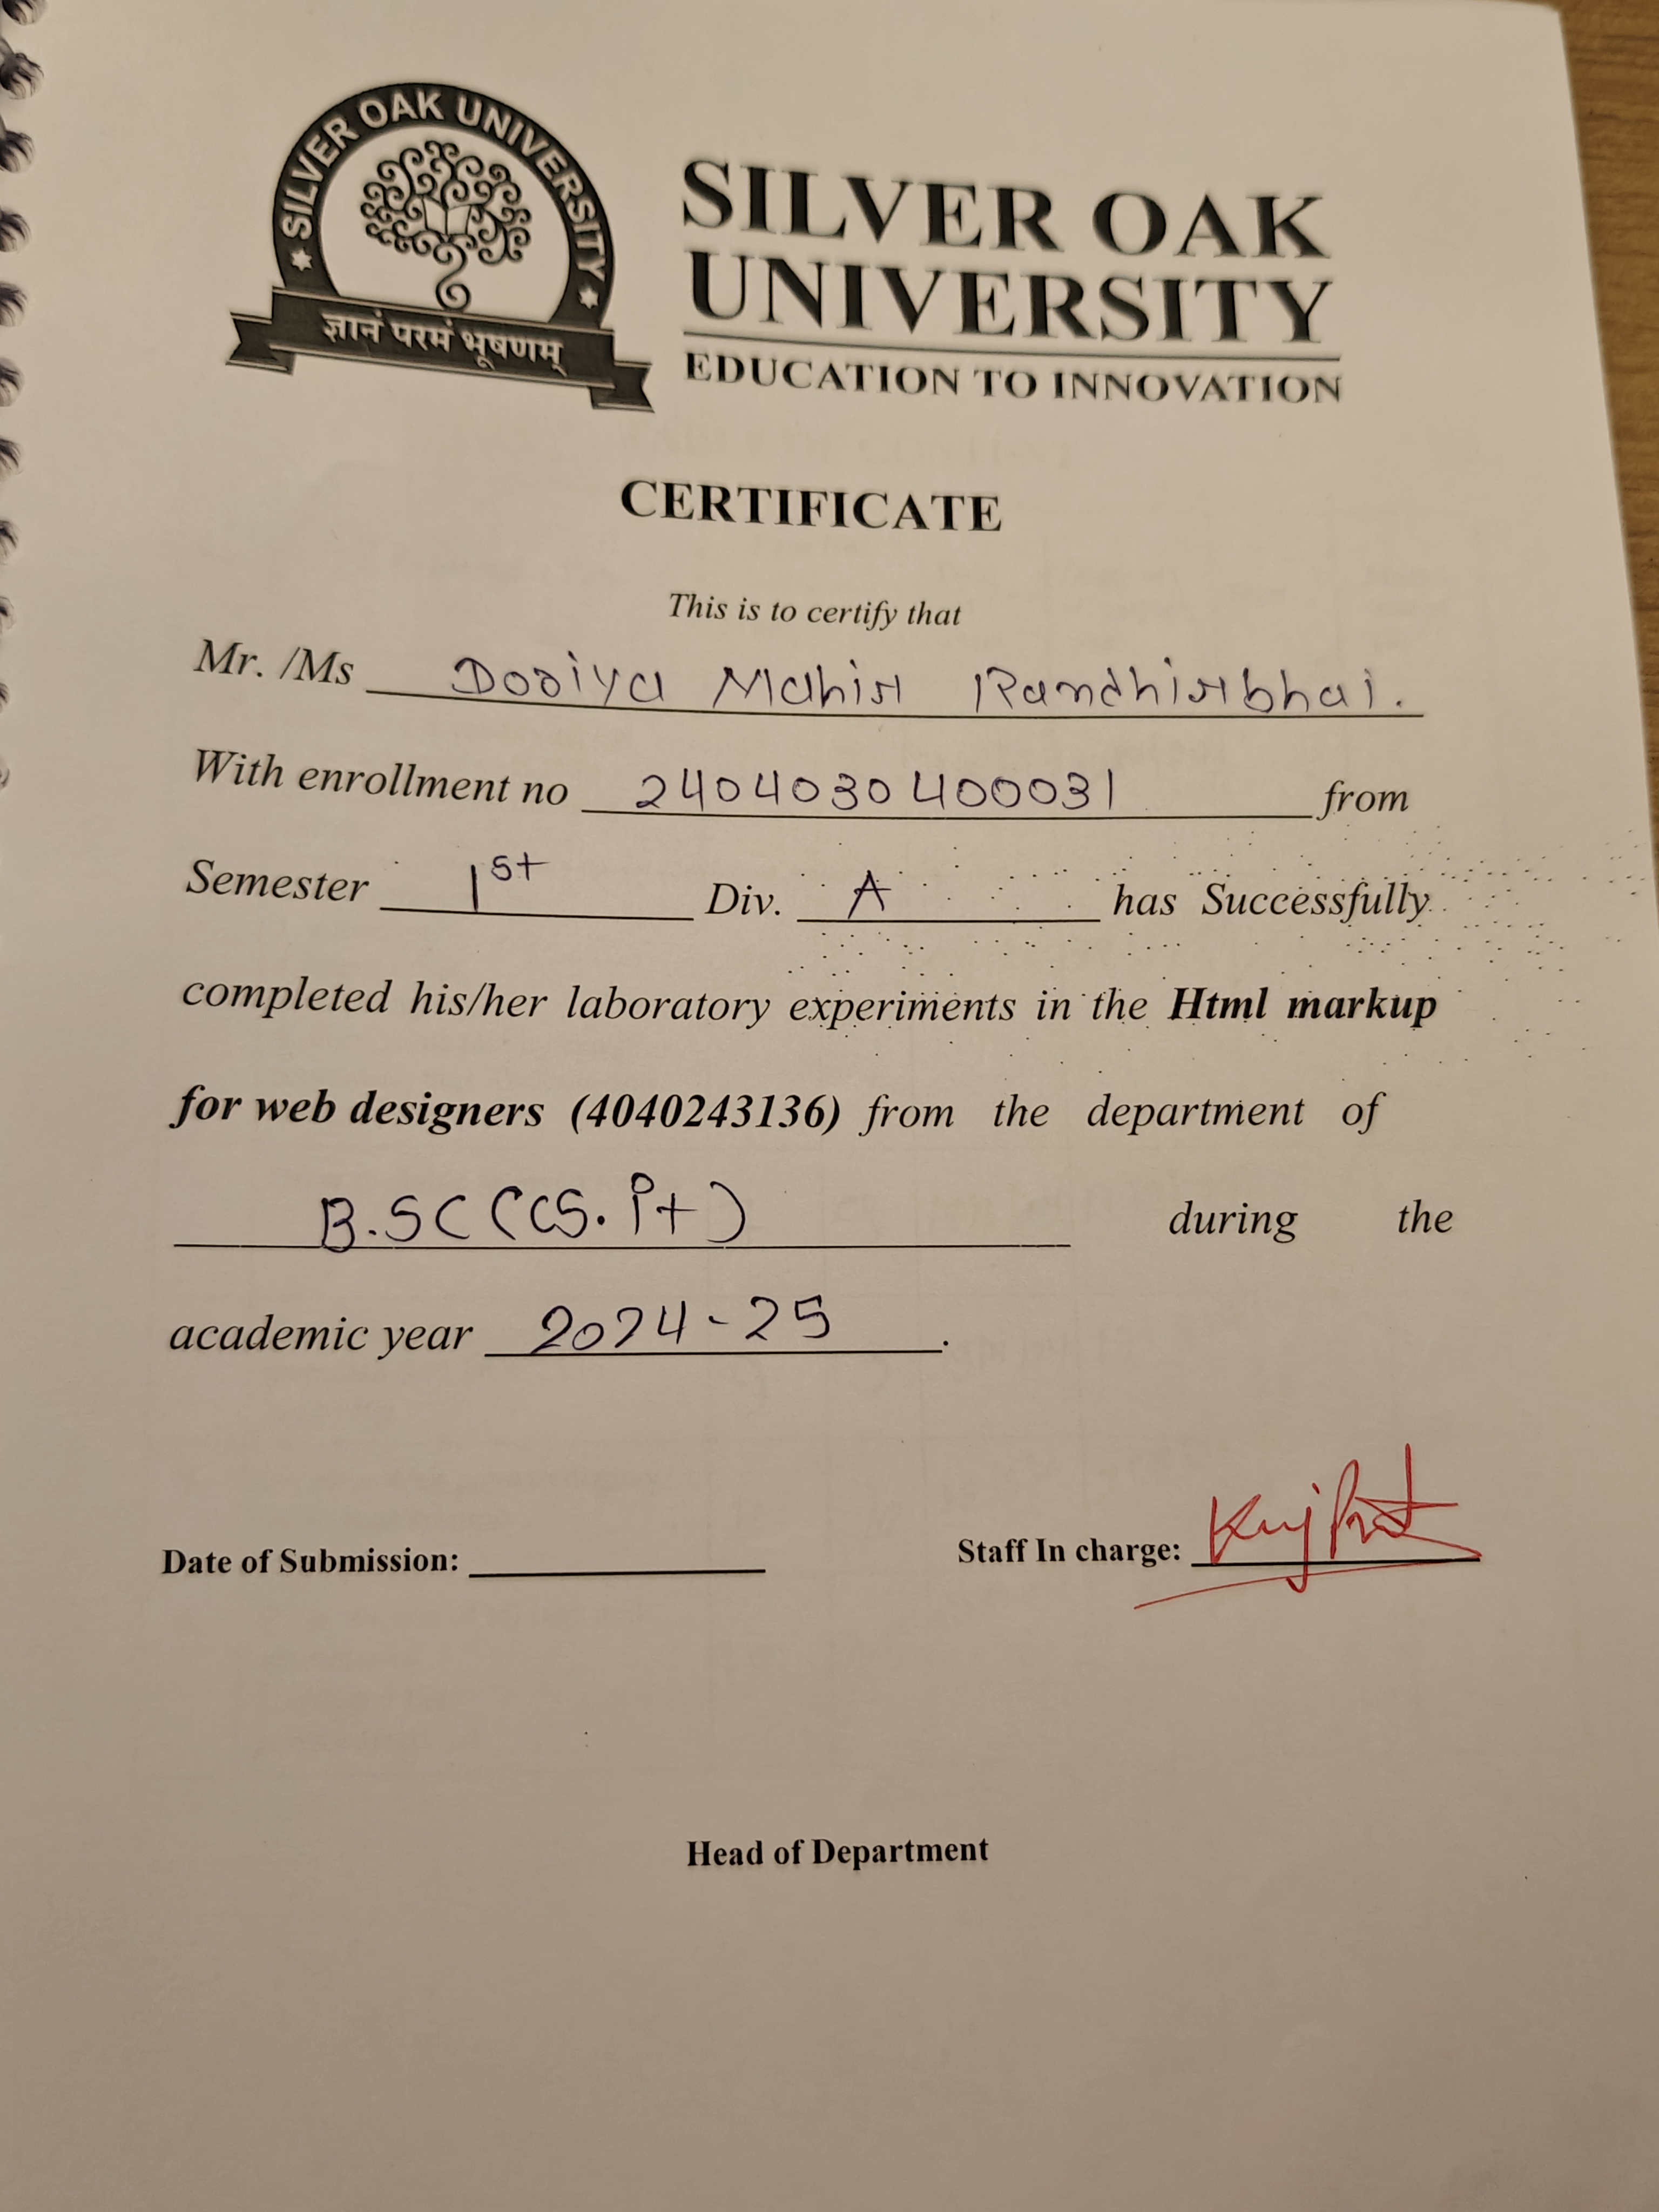 SILVER OAK UNIVERSITY
ज्ञानं परमं भूषणम्
SILVER OAK
UNIVERSITY
EDUCATION TO INNOVATION
CERTIFICATE
This is to certify that
Mr. /Ms Dodiya Mahir Randhirbhai.
With enrollment no 2404030400031 from
Semester 1st Div. A has Successfully
completed his/her laboratory experiments in the Html markup
for web designers (4040243136) from the department of
B.SC (CS. it) during the
academic year 2024-25.
Date of Submission:
Staff In charge:
Head of Department